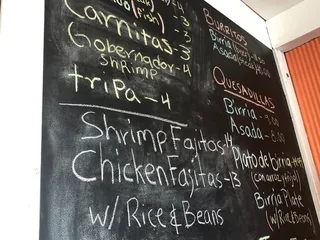 (fish)
Carnitas - 3
Gobernador - 4
Shrimp
tripa - 4
Shrimp Fajitas 14
Chicken Fajitas - 13
w/ Rice & Beans
BURRITOS
Birria
Asada
QUESADILLAS
Birria - 9.00
Asada - 8.00
Plato de birria
(con arroz y frijol)
Birria Plate
(w/ Rice & Beans)